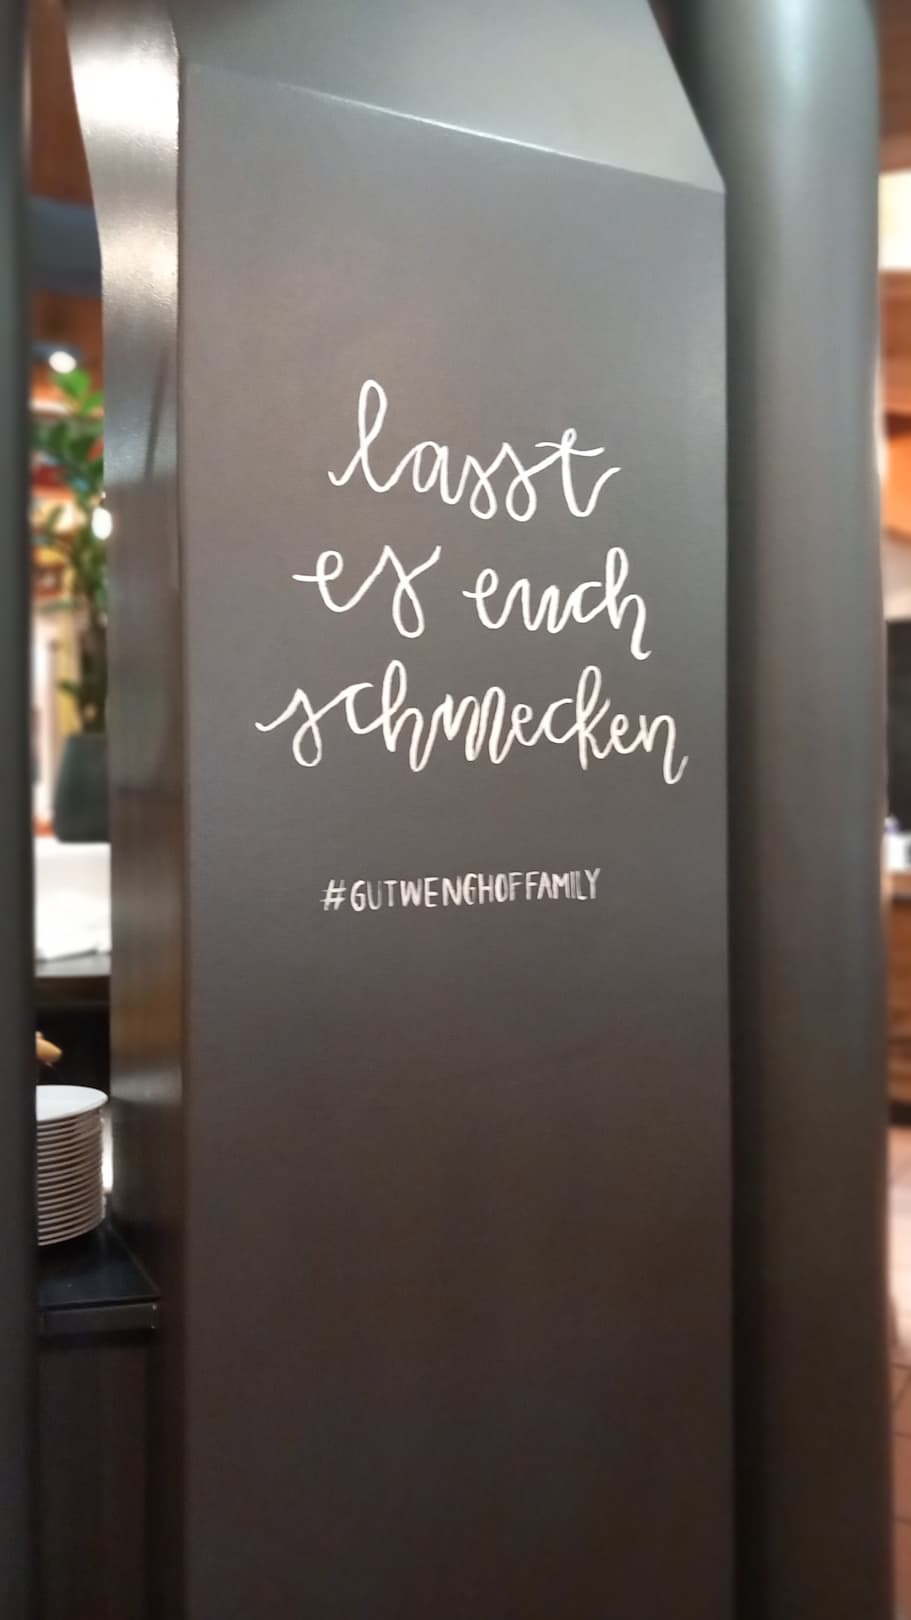 lasst
es euch
schmecken
#GUTWENGHOFFAMILY